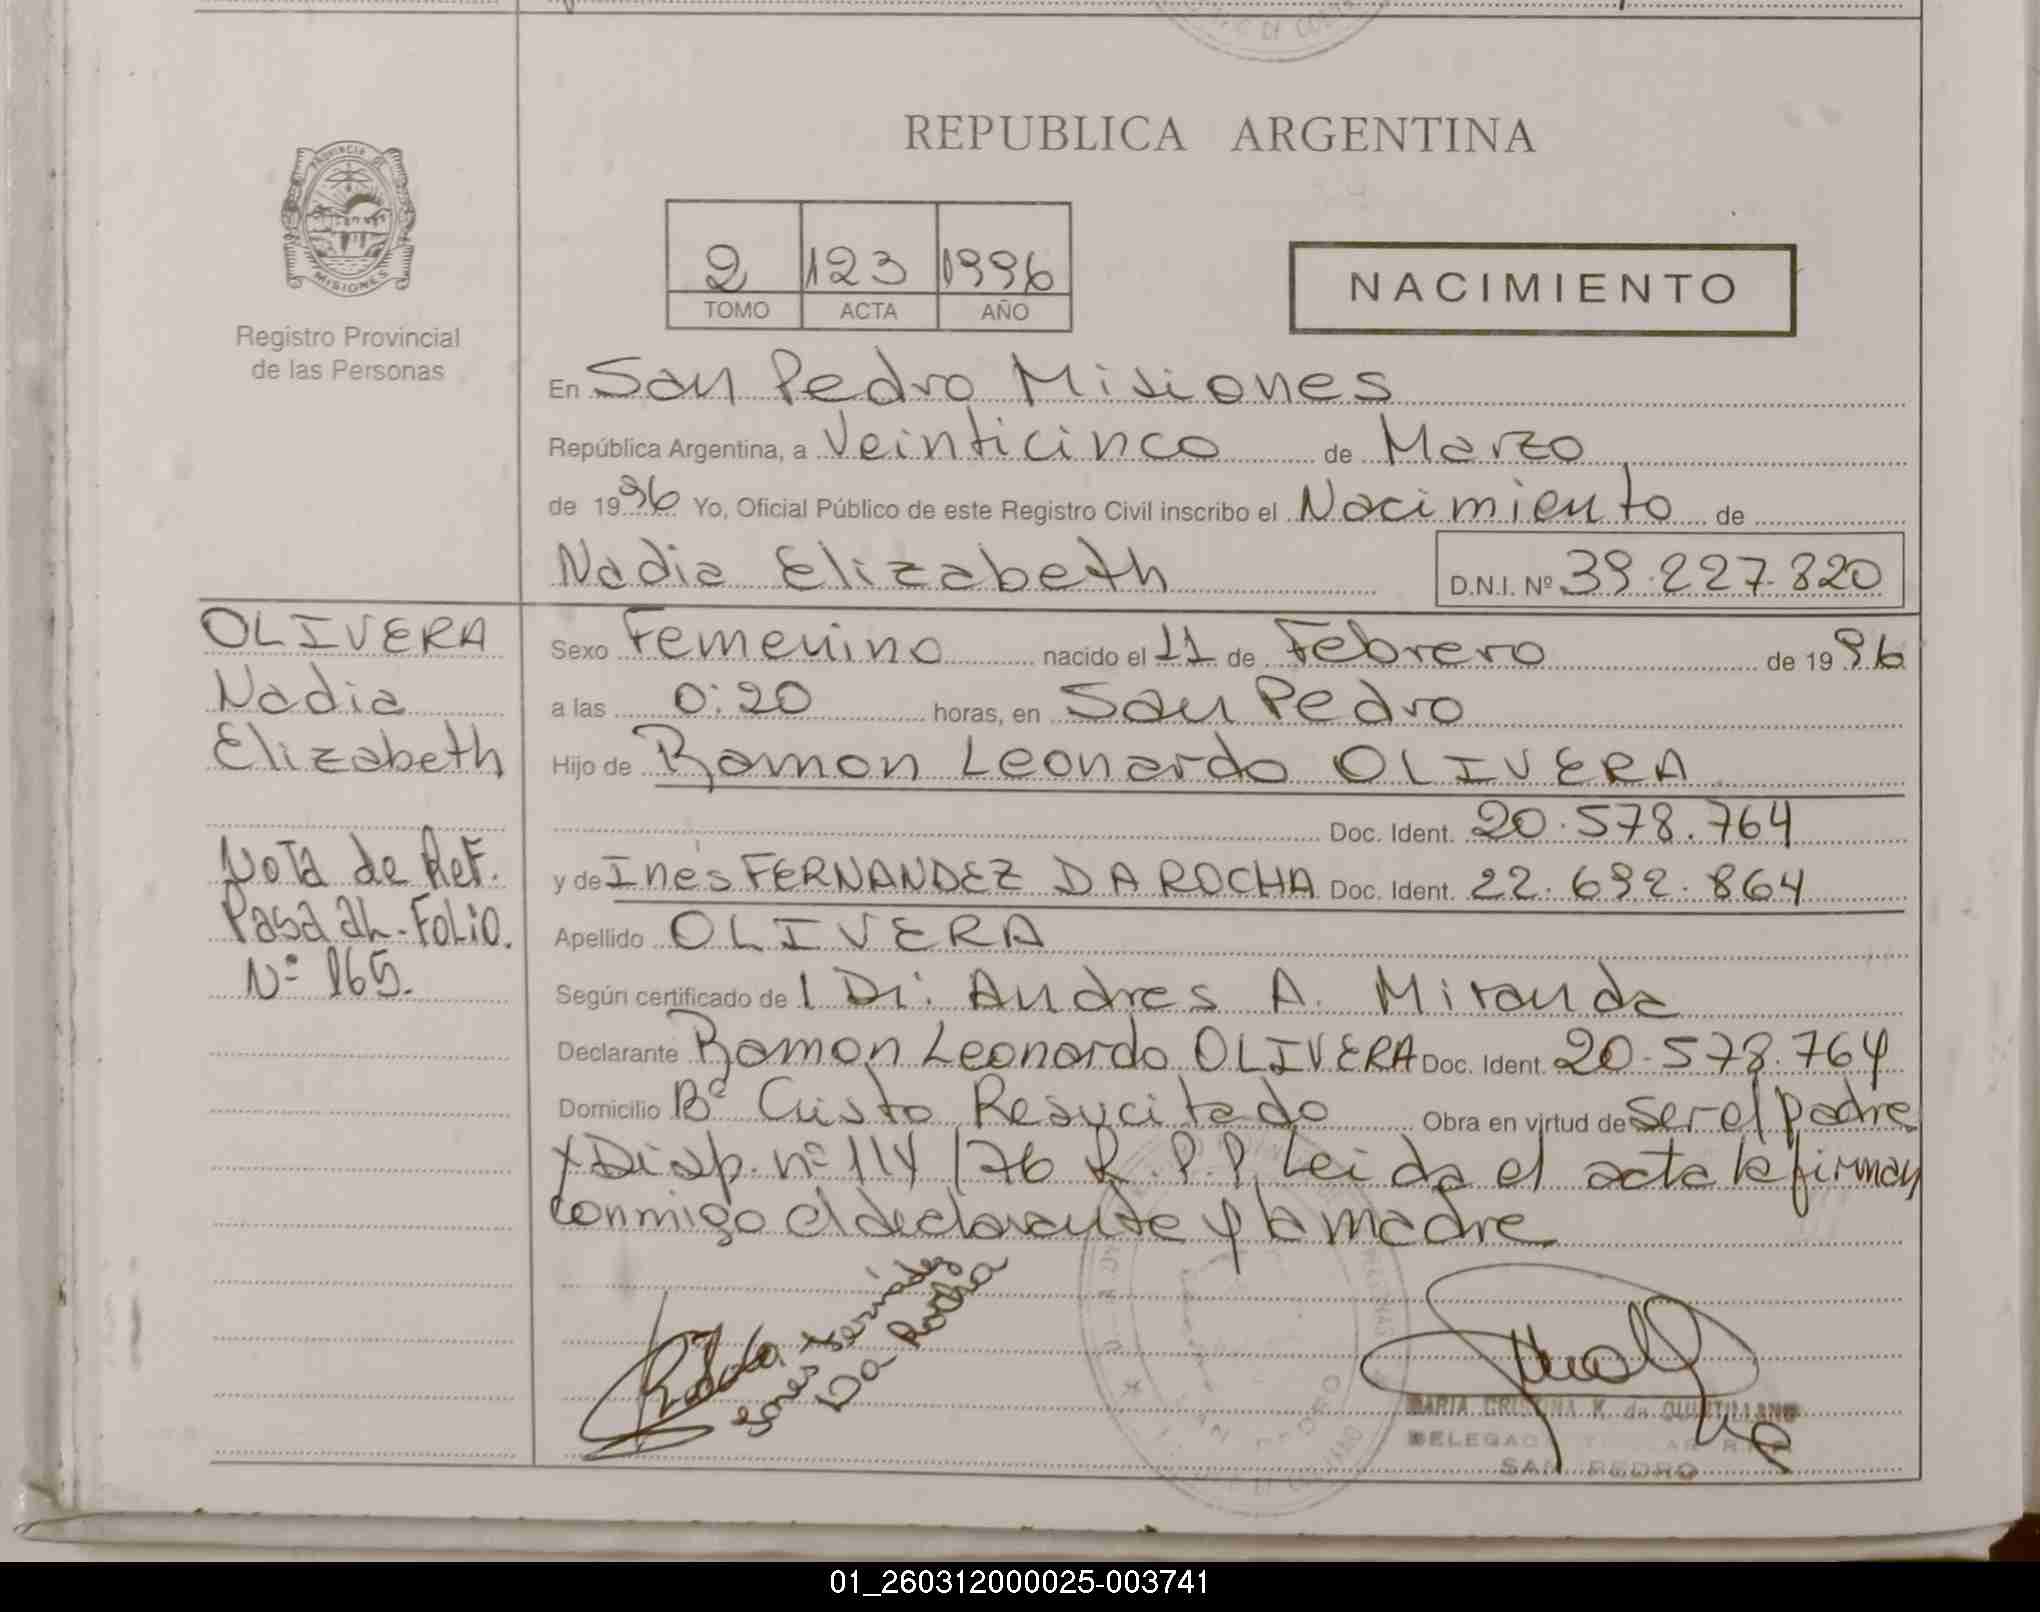 REPUBLICA ARGENTINA
PROVINCIA DE
MISIONES
Registro Provincial
de las Personas
2 123 1996
TOMO ACTA AÑO
NACIMIENTO
En San Pedro Misiones
República Argentina, a Veinticinco de Marzo
de 1996 Yo, Oficial Público de este Registro Civil inscribo el Nacimiento de
Nadia Elizabeth D.N.I. Nº 39.227.820
OLIVERA
Nadia
Elizabeth
Nota de Ref.
Pasa al-Folio.
Nº 165.
Sexo Femenino nacido el 11 de Febrero de 1996
a las 0:20 horas, en San Pedro
Hijo de Ramon Leonardo OLIVERA
Doc. Ident. 20.578.764
y de Inés FERNANDEZ DA ROCHA Doc. Ident. 22.692.864
Apellido OLIVERA
Según certificado de l Dr. Andres A. Miranda
Declarante Ramon Leonardo OLIVERA Doc. Ident. 20.578.764
Domicilio Bº Cristo Resucitado Obra en virtud de ser el padre
y Disp. nº 114/76 R.P.P. Leida el acta la firman
conmigo el declarante y la madre
Ines Fernández
Da Rocha
MARIA CRISTINA K. de QUINTILLANO
DELEGADA TITULAR R.P.P.
SAN PEDRO
01_260312000025-003741